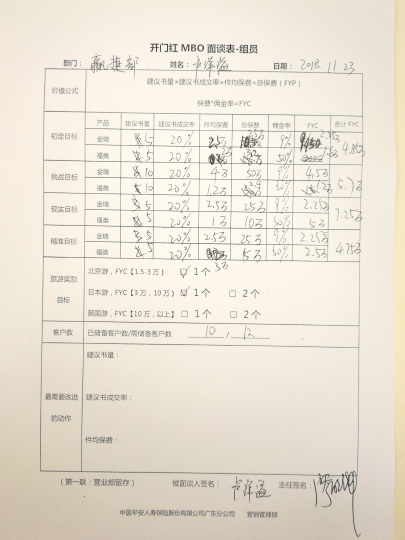 开门红 MBO 面谈表-组员
部门： 赢捷部 姓名： 卢祥溢 日期： 2018.11.23
价值公式
建议书量×建议书成交率×件均保费=总保费（FYP）
保费*佣金率=FYC
产品 建议书量 建议书成交率 件均保费 总保费 佣金率 FYC 合计 FYC
初定目标
金瑞 5 20% 9%
福类 5 20% 50%
挑战目标
金瑞 10 20% 9% 4.5万
福类 10 20%
现实目标 7.25万
金瑞 5 20% 2.5万 25万 9% 2.25万
福类 5 20% 10万 50% 5万
精准目标 4.75万
金瑞 5 20% 2.5万 25万 9% 2.25万
福类 5 20% 5万 50% 2.5万
旅游奖励
目标
北京游，FYC【1.5-3万】 ☑ 1个
日本游，FYC【3万，10万】 ☑ 1个 □ 2个
英国游，FYC【10万，以上】 □ 1个 □ 2个
客户数 已储备客户数/需储备客户数 10，12
最需要改进
的动作
建议书量：
建议书成交率：
件均保费：
（第一联：营业部留存） 被面谈人签名： 卢祥溢 主任签名：
中国平安人寿保险股份有限公司广东分公司 营销管理部